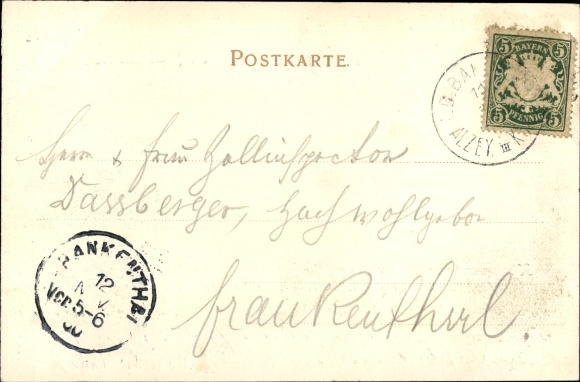 POSTKARTE.
5 5
BAYERN
PFENNIG
5 5
BAH
ALZEY. III K
Herrn & Frau Zollinspector
Dassberger, Hochwohlgebor
Frankenthal.
FRANKENTHAL
12
Vor. 5-6
00